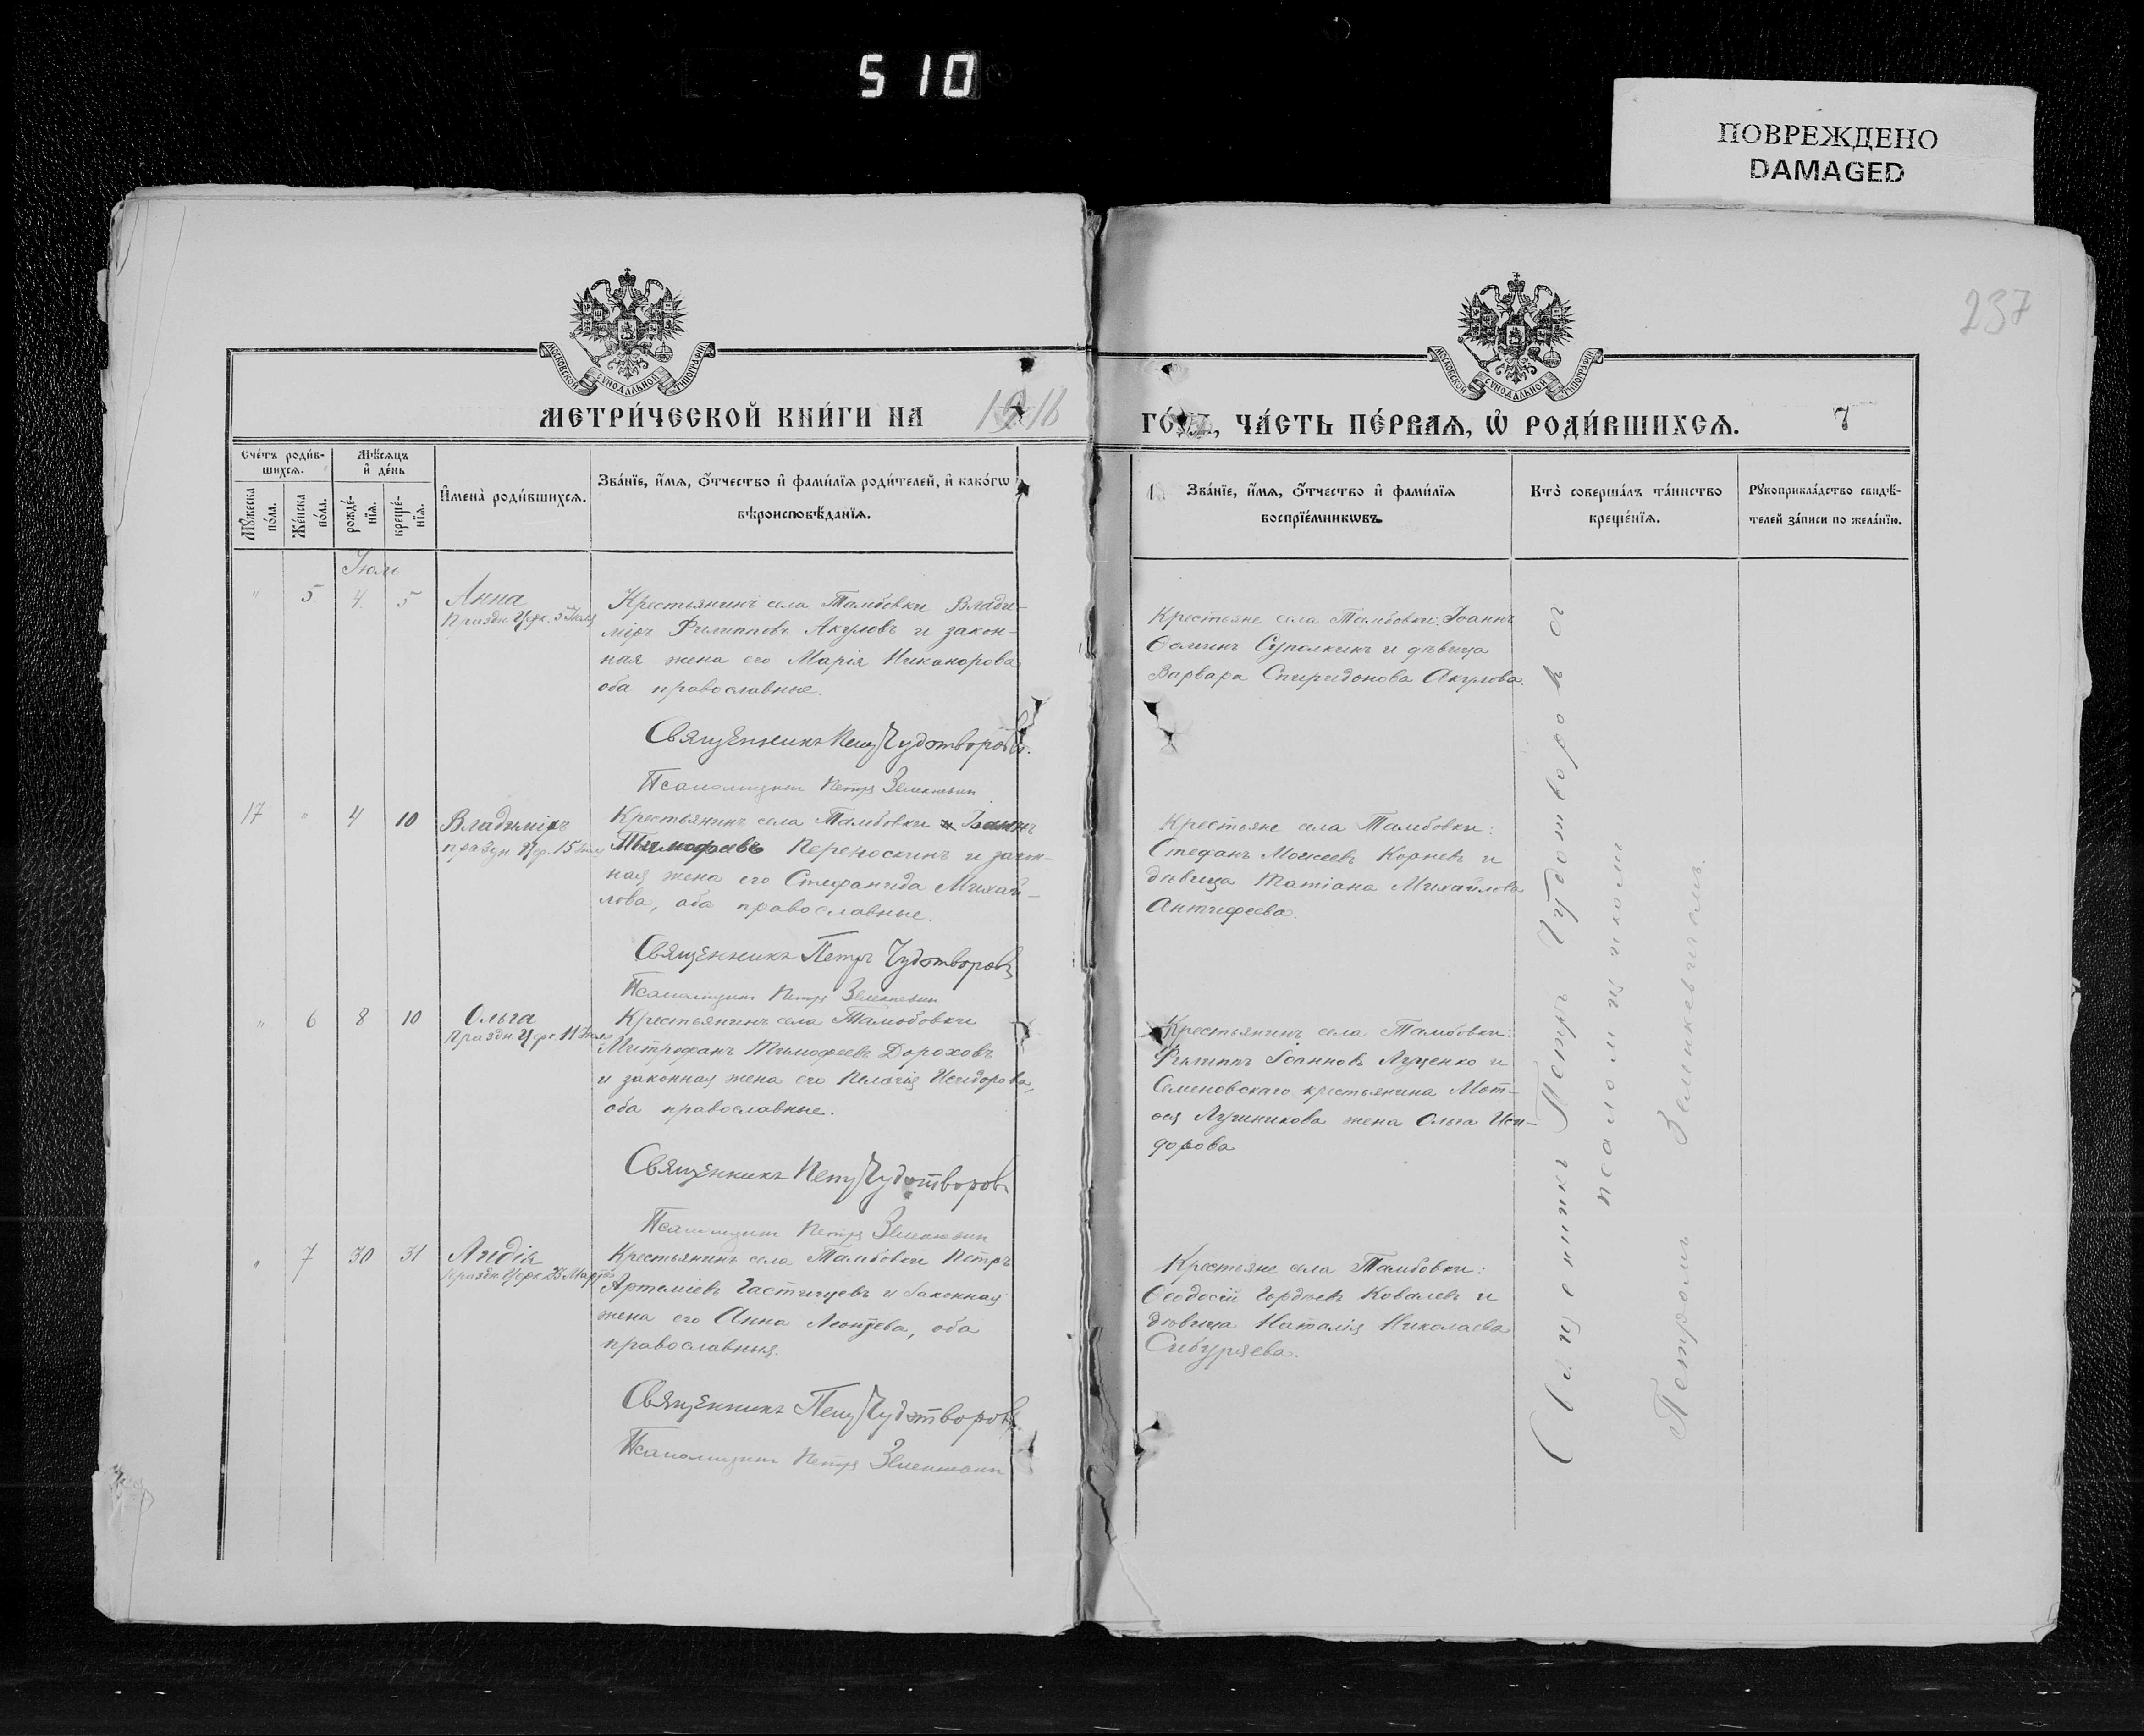 510
ПОВРЕЖДЕНО
DAMAGED
237
МОСКОВСКОЙ СѴНОДАЛЬНОЙ ТИПОГРАФІИ
МОСКОВСКОЙ СѴНОДАЛЬНОЙ ТИПОГРАФІИ
МЕТРИ́ЧЕСКОЙ КНИ́ГИ НА 1918
ГО́ДЪ, ЧА́СТЬ ПЕ́РВАѦ, Ѡ҆ РОДИ́ВШИХСѦ. 7
Сче́тъ роди́в-
шихсѧ.
Мꙋ́жеска по́ла.
Же́нска по́ла.
Мѣ́сѧцъ и҆ де́нь
рожде́нїѧ.
креще́нїѧ.
И҆мена̀ роди́вшихсѧ.
Зва́нїе, и҆́мѧ, ѻ҆́тчество и҆ фами́лїѧ роди́телей, и҆ како́гѡ
вѣроисповѣ́данїѧ.
Зва́нїе, и҆́мѧ, ѻ҆́тчество и҆ фами́лїѧ
воспрїе́мникѡвъ.
Кто̀ соверша́лъ та́инство
креще́нїѧ.
Рꙋкоприкла́дство свидѣ́-
телей за́писи по жела́нїю.
Іюль
" 5 4 5 Анна
Праздн. Церк. 5 Іюля
Крестьянинъ села Тамбовки Влади-
міръ Филипповъ Акуловъ и закон-
ная жена его Марія Никанорова
оба православные.
Священникъ Петръ Чудотворовъ.
Псаломщикъ Петръ
Крестьяне села Тамбовки: Іоаннъ
Ѳоминъ Суполкинъ и дѣвица
Варвара Спиридонова Акулова.
17 " 4 10 Владиміръ
празд. Цер. 15 Іюля
Крестьянинъ села Тамбовки Іоаннъ
Тимофеевъ Переноскинъ и закон-
ная жена его Стефанида Михай-
лова, оба православные.
Священникъ Петръ Чудотворовъ
Псаломщикъ Петръ
Крестьяне села Тамбовки:
Стефанъ Моисеевъ Корневъ и
дѣвица Татіана Михайлова
Антифеева.
" 6 8 10 Ольга
Праздн. Церк. 11 Іюля
Крестьянинъ села Тамбовки
Митрофанъ Тимофеевъ Дороховъ
и законная жена его Пелагія Исидорова,
оба православные.
Священникъ Петръ Чудотворовъ
Псаломщикъ Петръ
Крестьянинъ села Тамбовки:
Филиппъ Іоанновъ Луценко и
Семеновскаго крестьянина Мат-
ѳея Лушникова жена Ольга Иси-
дорова
" 7 30 31 Лидія
Праздн. Церк. 23 Марта
Крестьянинъ села Тамбовки Петръ
Артеміевъ Частицевъ и законная
жена его Анна Леонтьева, оба
православныя.
Священникъ Петръ Чудотворовъ
Псаломщикъ Петръ
Крестьяне села Тамбовки:
Ѳеодосій Гордѣевъ Ковалевъ и
дѣвица Наталія Николаева
Сибиряева.
Священникъ Петръ Чудотворовъ съ
псаломщикомъ
Петромъ